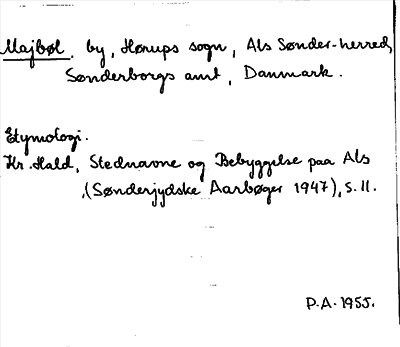 Majbøl, by, Hørups sogn, Als Sønder-herred,
Sønderborgs amt, Danmark.
Etymologi.
Kr. Hald, Stednavne og Bebyggelse paa Als
(Sønderjydske Aarbøger 1947), S. 11.
P.A. 1955.